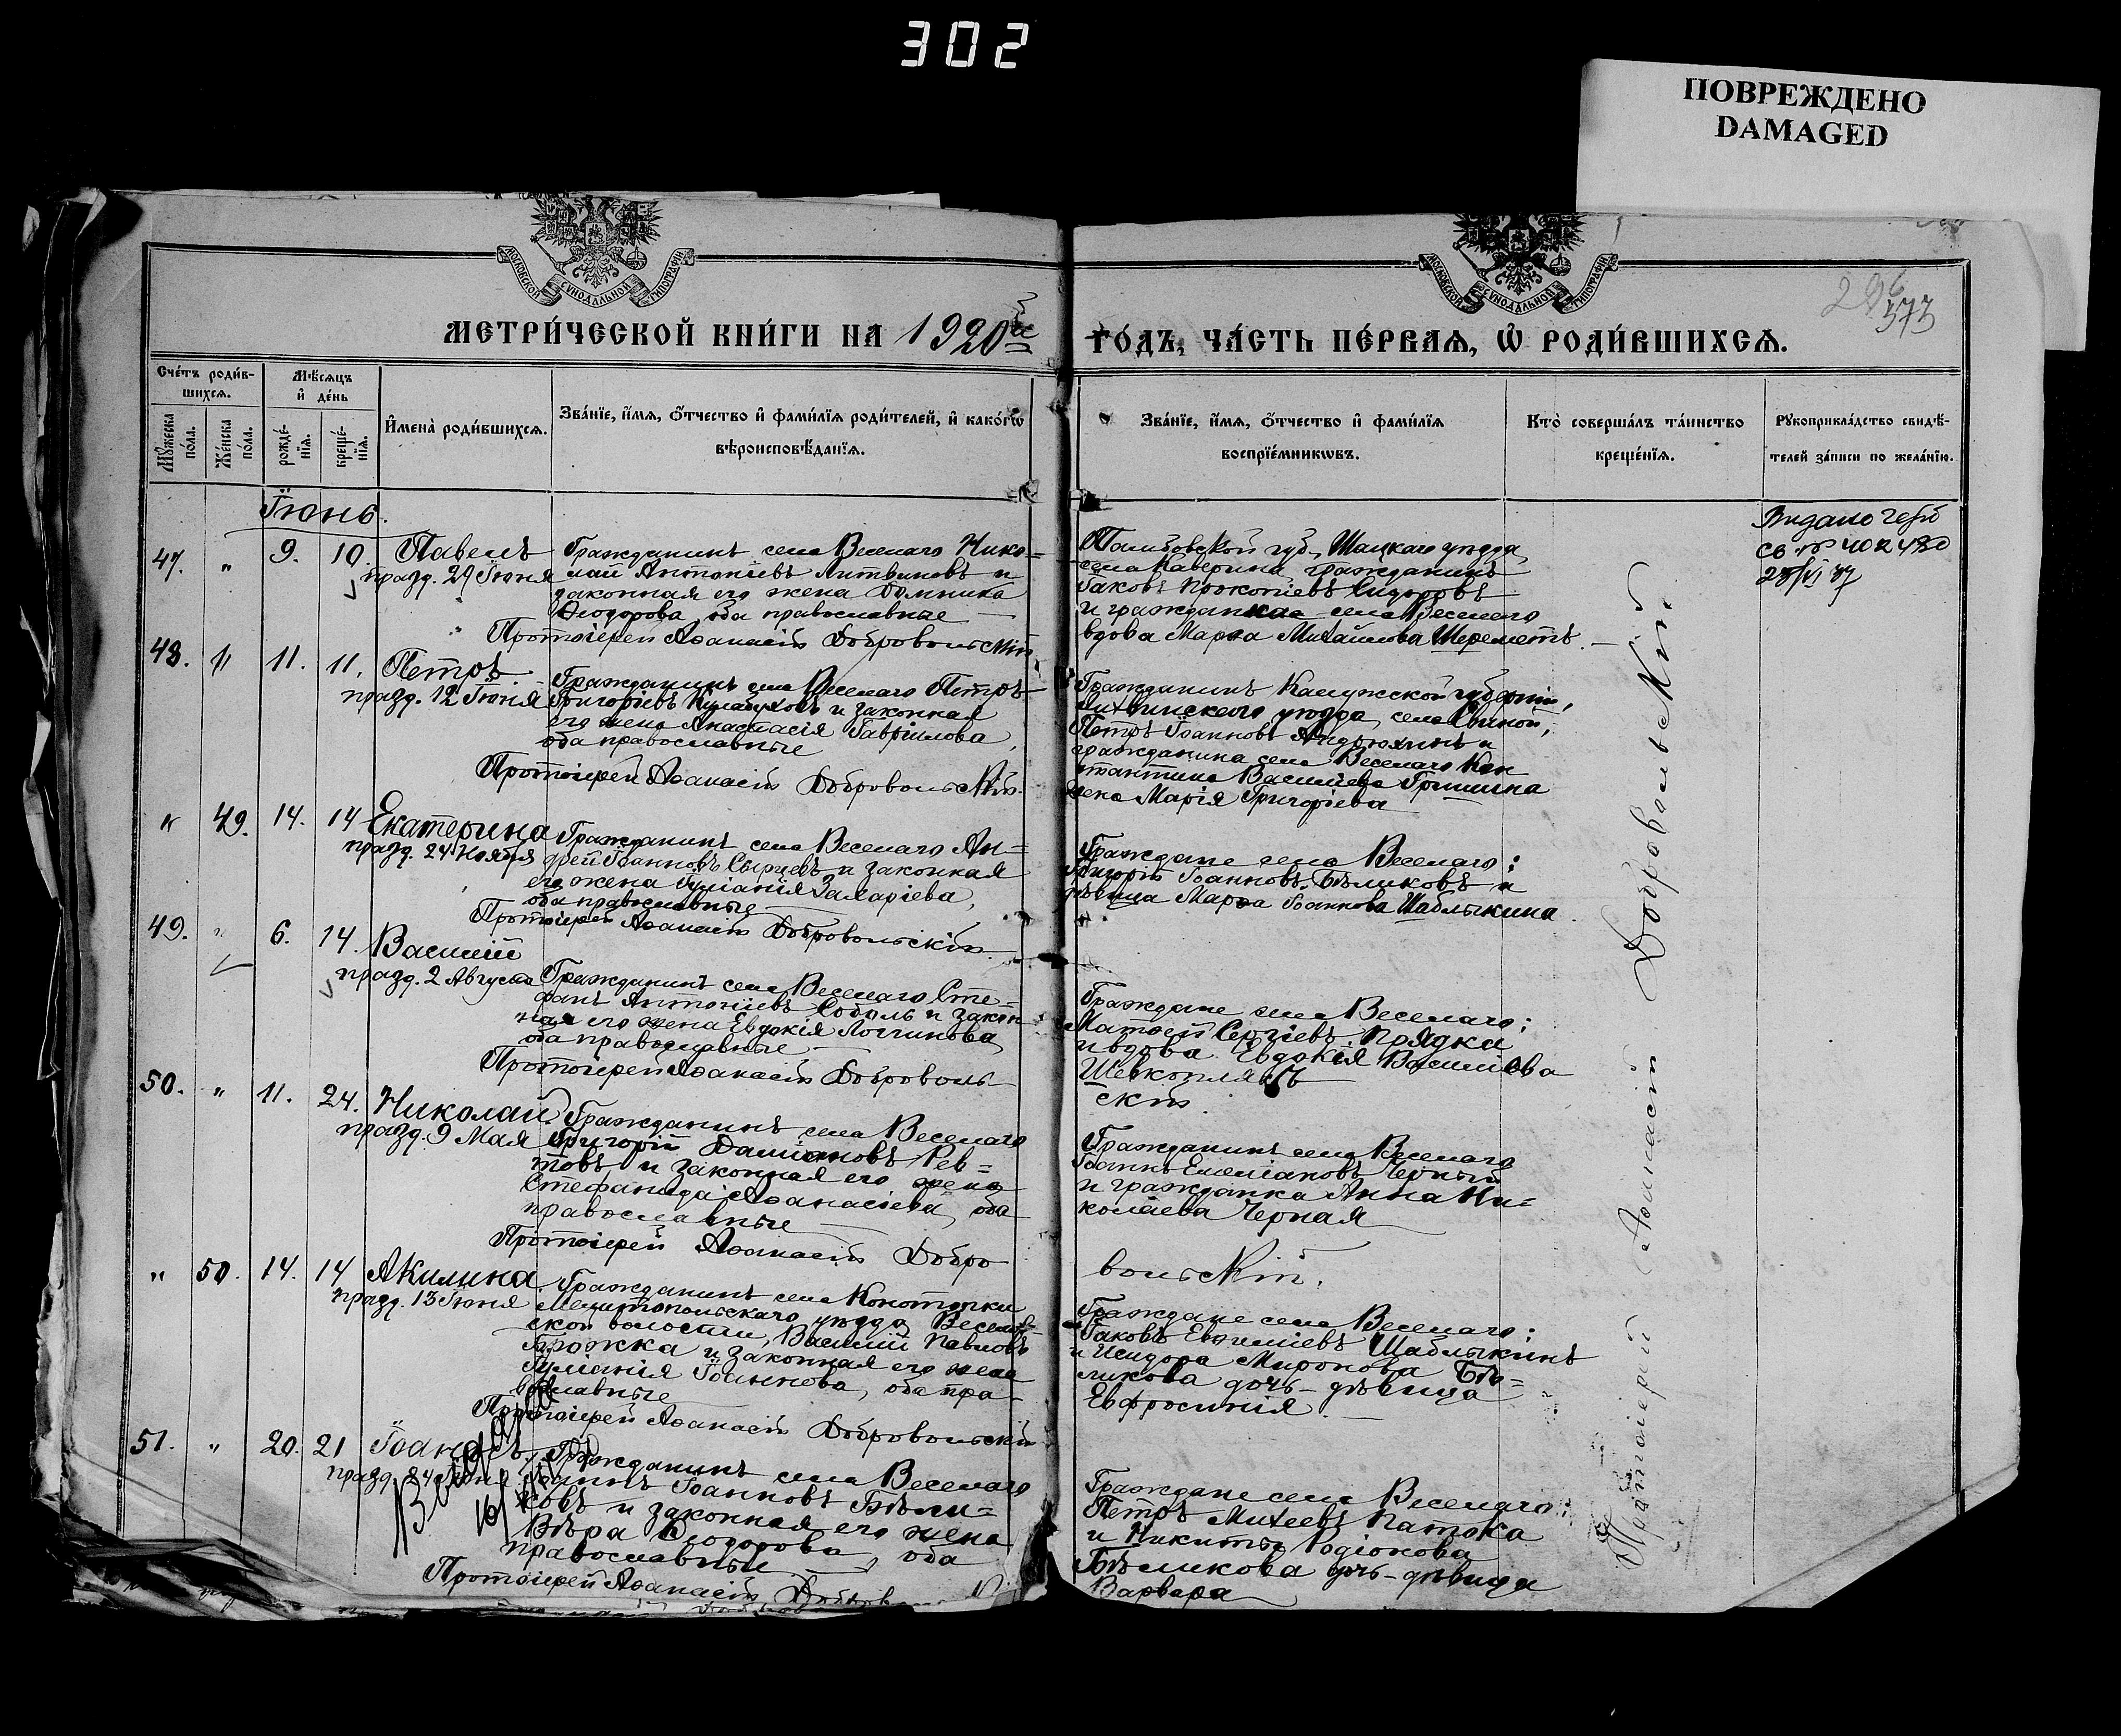 302
ПОВРЕЖДЕНО
DAMAGED
МОСКОВСКОЙ СѴНОДАЛЬНОЙ ТИПОГРАФІИ
МОСКОВСКОЙ СѴНОДАЛЬНОЙ ТИПОГРАФІИ
296
373
МЕТРИ́ЧЕСКОЙ КНИ́ГИ НА 1920й ГО́ДЪ, ЧА́СТЬ ПЕ́РВАЯ, Ѡ҆ РОДИ́ВШИХСЯ.
Сче́тъ роди́в-
шихся.
Мꙋ́жеска по́ла.
Же́нска по́ла.
Мѣ́сяцъ
и҆ де́нь
рожде́-
нїя.
креще́-
нїя.
И҆мена̀ роди́вшихся.
Зва́нїе, и҆́мя, ѻ҆́тчество и҆ фами́лїя роди́телей, и҆ како́гѡ
вѣроисповѣ́данїя.
Зва́нїе, и҆́мя, ѻ҆́тчество и҆ фами́лїя
воспрїе́мникѡвъ.
Кто̀ соверша́лъ та́инство
креще́нїя.
Рꙋкоприкла́дство свидѣ́-
телей за́писи по жела́нїю.
Іюнь.
47. " 9. 10. Павелъ
празд. 29 Іюня
Гражданинъ села Веселаго Нико=
лай Антоніевъ Литвиновъ и
законная его жена Домника
Ѳеодорова, оба православные
Протоіерей Аѳанасій Добровольскій
Тамбовской губ., Шацкаго уѣзда,
села Каверина гражданинъ
Іаковъ Прокопіевъ Сидоровъ
и гражданка села Веселаго
вдова Марѳа Михайлова Шереметъ.
Видано
св № 402480
28/VI 37
48. " 11. 11. Петръ
празд. 12 Іюня
Гражданинъ села Веселаго Петръ
Григоріевъ и законная
его жена Анастасія Гавріилова,
оба православные
Протоіерей Аѳанасій Добровольскій.
Гражданинъ Калужской губерніи,
Лихвинскаго уѣзда, села
Петръ Іоанновъ Андрюхинъ и
гражданина села Веселаго Кон
стантина Василіева Гришина
жена Марія Григоріева
" 49. 14. 14 Екатерина
празд. 24 Ноября
Гражданинъ села Веселаго Ан=
дрей Іоанновъ Сырцевъ и законная
его жена Іуліанія Захаріева,
оба православные
Протоіерей Аѳанасій Добровольскій.
Граждане села Веселаго:
Григорій Іоанновъ Бѣликовъ и
дѣвица Марѳа Іоаннова Шаблыкина.
49. " 6. 14. Василій
празд. 2 Августа
Гражданинъ села Веселаго Сте=
фанъ Антоніевъ Соболь и закон
ная его жена Евдокія Логгинова,
оба православные
Протоіерей Аѳанасій Доброволь-
скій.
Граждане села Веселаго:
Матѳей Сергіевъ Прядка
и вдова Евдокія Василіева
Шевкоплясъ
50. " 11. 24. Николай
празд. 9 Мая
Гражданинъ села Веселаго
Григорій Даміановъ Рев=
товъ и законная его жена
Стефанида Аѳанасіева, оба
православные
Протоіерей Аѳанасій Добро
вольскій.
Гражданинъ села Веселаго
Іоаннъ Емеліановъ Черный
и гражданка Анна Ни=
колаева Черная
" 50. 14. 14 Акилина
празд. 13 Іюня
Гражданинъ села
Мелитопольскаго уѣзда Веселов=
ской волости, Василій Павловъ
и законная его жена
Іуліанія Іоаннова, оба пра
вославные
Протоіерей Аѳанасій Добровольскій
Граждане села Веселаго:
Іаковъ Евфиміевъ Шаблыкинъ
и Исидора Миронова Бѣ=
ликова дочь-дѣвица
Евфросинія.
51. " 20. 21 Іоаннъ
празд. 24 Іюня
Гражданинъ села Веселаго
Іоаннъ Іоанновъ Бѣли=
ковъ и законная его жена
Вѣра Ѳеодорова, оба
православные
Протоіерей Аѳанасій
Граждане села Веселаго:
Петръ Михеевъ Патока
и Никиты Родіонова
Бѣликова дочь-дѣвица
Варвара
Протоіерей Аѳанасій Добровольскій.